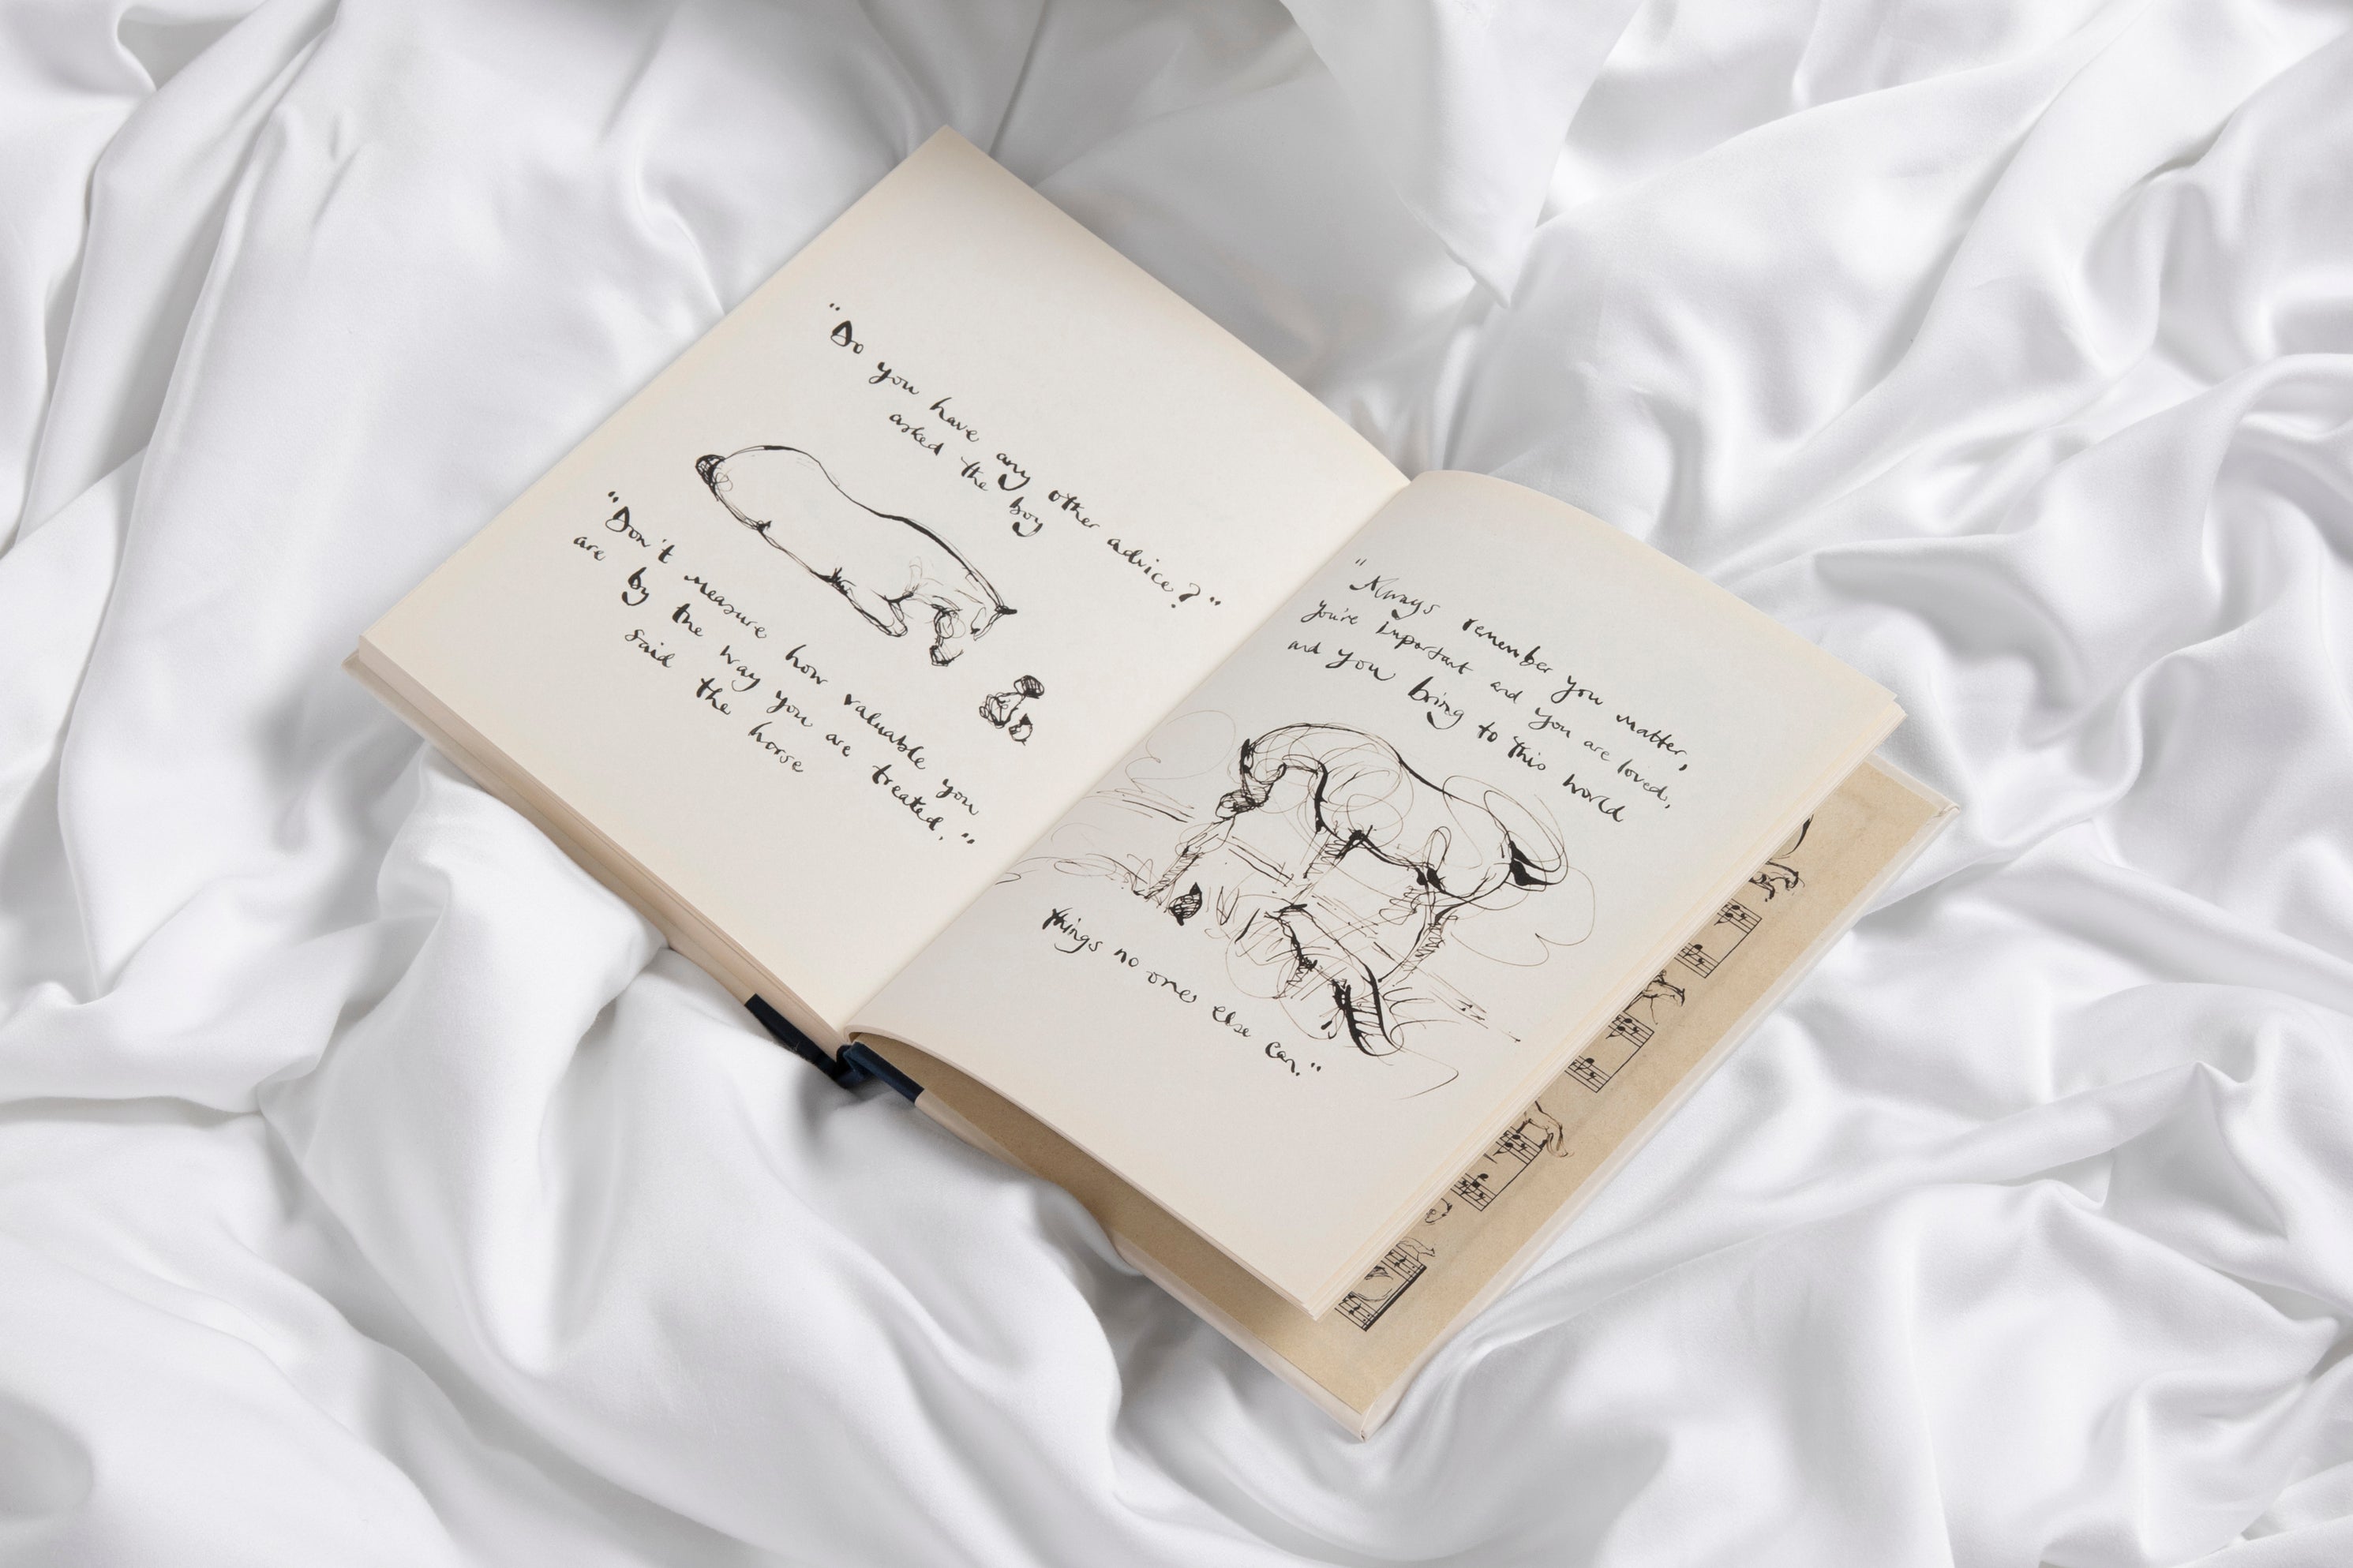 "Do you have any other advice?"
asked the boy
"Don't measure how valuable you
are by the way you are treated."
said the horse
"Always remember you matter,
you're important and you are loved,
and you bring to this world
things no one else can."